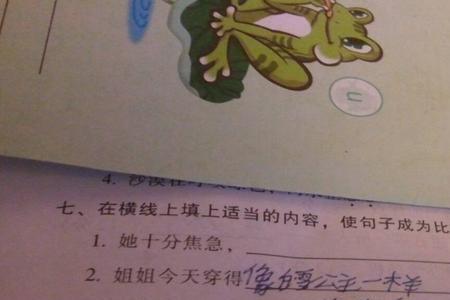 u
七、在横线上填上适当的内容，使句子成为比
1. 她十分焦急，
2. 姐姐今天穿得像白雪公主一样